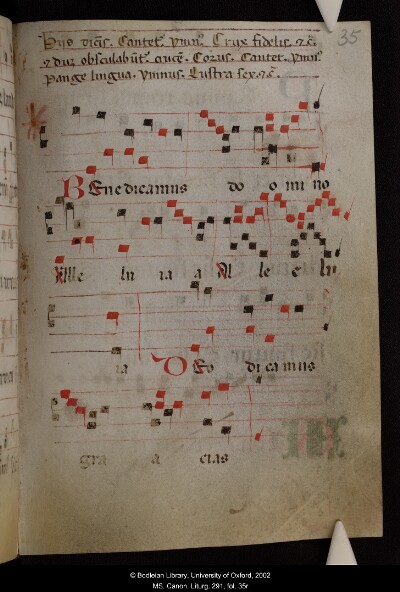 35
dic̄s. Cantet̄. ymn̄. Crux fidelis. ⁊c̄.
⁊ duꝫ obsculabūt̄. crucē. Corus. Cantet. ymn̄.
Pange lingua. ymnus. Lustra sex. ⁊c̄.
BEnedicamus do o mi no
Alle lu ia a Al le e lu
ia DEo dicamus
gra a cias
© Bodleian Library, University of Oxford, 2002
MS. Canon. Liturg. 291, fol. 35r